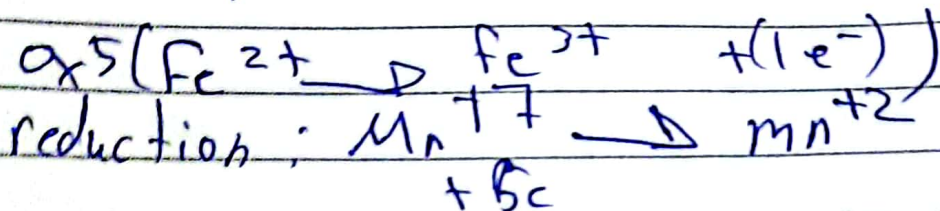 ox 5(Fe²⁺ → fe³⁺ +(1e⁻))
reduction : Mn⁺⁷ → mn⁺²
+ 5e